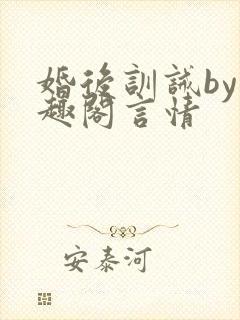 婚後訓誡by
趣閣言情
安泰河